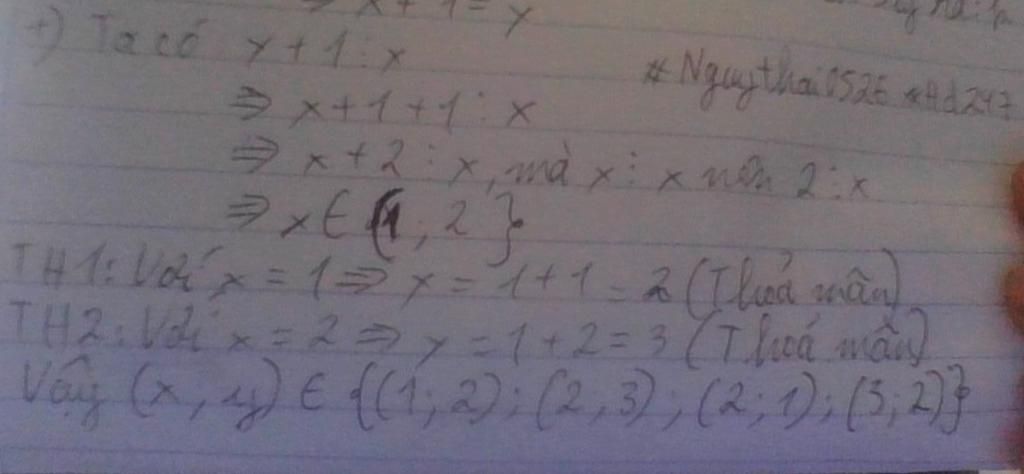 ⇒ x + 1 = y
+) Ta có y + 1 ⋮ x
#Nguythai0526 #Hd247
⇒ x + 1 + 1 ⋮ x
⇒ x + 2 ⋮ x, mà x ⋮ x nên 2 ⋮ x
⇒ x ∈ {1; 2}
TH1: Với x = 1 ⇒ y = 1 + 1 = 2 (Thoả mãn)
TH2: Với x = 2 ⇒ y = 1 + 2 = 3 (Thoả mãn)
Vậy (x, y) ∈ {(1; 2); (2, 3); (2; 1); (3; 2)}